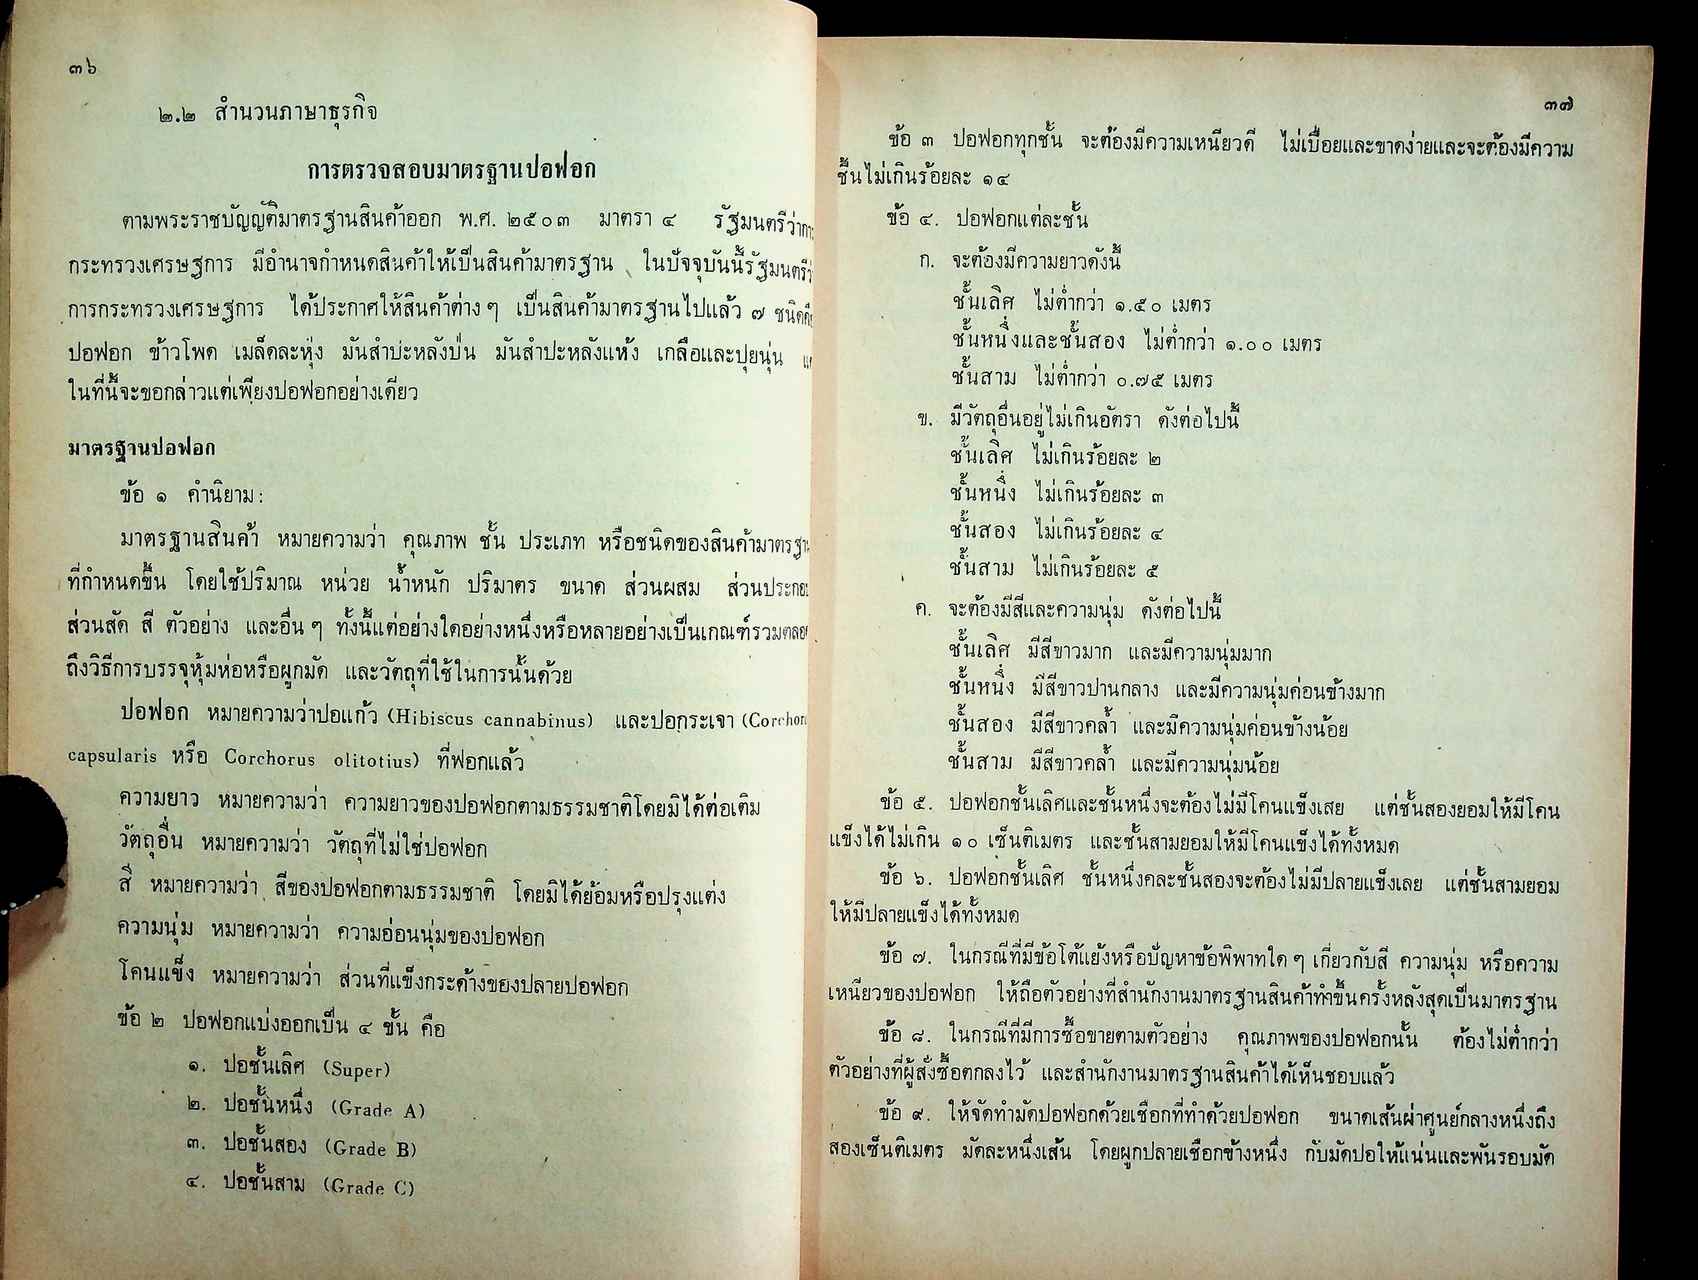 ๓๖
๒.๒ สำนวนภาษาธุรกิจ
การตรวจสอบมาตรฐานปอฟอก
ตามพระราชบัญญัติมาตรฐานสินค้าออก พ.ศ. ๒๕๐๓ มาตรา ๔ รัฐมนตรีว่าการ
กระทรวงเศรษฐการ มีอำนาจกำหนดสินค้าให้เป็นสินค้ามาตรฐาน ในปัจจุบันนี้รัฐมนตรี
การกระทรวงเศรษฐการ ได้ประกาศให้สินค้าต่าง ๆ เป็นสินค้ามาตรฐานไปแล้ว ๗ ชนิด
ปอฟอก ข้าวโพด เมล็ดละหุ่ง มันสำปะหลังป่น มันสำปะหลังแห้ง เกลือและปุยนุ่น
ในที่นี้จะขอกล่าวแต่เพียงปอฟอกอย่างเดียว
มาตรฐานปอฟอก
ข้อ ๑ คำนิยาม :
มาตรฐานสินค้า หมายความว่า คุณภาพ ชั้น ประเภท หรือชนิดของสินค้ามาตรฐาน
ที่กำหนดขึ้น โดยใช้ปริมาณ หน่วย น้ำหนัก ปริมาตร ขนาด ส่วนผสม ส่วนประกอบ
ส่วนสัด สี ตัวอย่าง และอื่น ๆ ทั้งนี้แต่อย่างใดอย่างหนึ่งหรือหลายอย่างเป็นเกณฑ์รวมตลอด
ถึงวิธีการบรรจุหุ้มห่อหรือผูกมัด และวัตถุที่ใช้ในการนั้นด้วย
ปอฟอก หมายความว่าปอแก้ว (Hibiscus cannabinus) และปอกระเจา (Corchor
capsularis หรือ Corchorus olitotius) ที่ฟอกแล้ว
ความยาว หมายความว่า ความยาวของปอฟอกตามธรรมชาติโดยมิได้ต่อเติม
วัตถุอื่น หมายความว่า วัตถุที่ไม่ใช่ปอฟอก
สี หมายความว่า สีของปอฟอกตามธรรมชาติ โดยมิได้ย้อมหรือปรุงแต่ง
ความนุ่ม หมายความว่า ความอ่อนนุ่มของปอฟอก
โคนแข็ง หมายความว่า ส่วนที่แข็งกระด้างของปลายปอฟอก
ข้อ ๒ ปอฟอกแบ่งออกเป็น ๔ ชั้น คือ
๑. ปอชั้นเลิศ (Super)
๒. ปอชั้นหนึ่ง (Grade A)
๓. ปอชั้นสอง (Grade B)
๔. ปอชั้นสาม (Grade C)
๓๗
ข้อ ๓ ปอฟอกทุกชั้น จะต้องมีความเหนียวดี ไม่เปื่อยและขาดง่ายและจะต้องมีความ
ชื้นไม่เกินร้อยละ ๑๔
ข้อ ๔. ปอฟอกแต่ละชั้น
ก. จะต้องมีความยาวดังนี้
ชั้นเลิศ ไม่ต่ำกว่า ๑.๕๐ เมตร
ชั้นหนึ่งและชั้นสอง ไม่ต่ำกว่า ๑.๐๐ เมตร
ชั้นสาม ไม่ต่ำกว่า ๐.๗๕ เมตร
ข. มีวัตถุอื่นอยู่ไม่เกินอัตรา ดังต่อไปนี้
ชั้นเลิศ ไม่เกินร้อยละ ๒
ชั้นหนึ่ง ไม่เกินร้อยละ ๓
ชั้นสอง ไม่เกินร้อยละ ๔
ชั้นสาม ไม่เกินร้อยละ ๕
ค. จะต้องมีสีและความนุ่ม ดังต่อไปนี้
ชั้นเลิศ มีสีขาวมาก และมีความนุ่มมาก
ชั้นหนึ่ง มีสีขาวปานกลาง และมีความนุ่มค่อนข้างมาก
ชั้นสอง มีสีขาวคล้ำ และมีความนุ่มค่อนข้างน้อย
ชั้นสาม มีสีขาวคล้ำ และมีความนุ่มน้อย
ข้อ ๕. ปอฟอกชั้นเลิศและชั้นหนึ่งจะต้องไม่มีโคนแข็งเสย แต่ชั้นสองยอมให้มีโคน
แข็งได้ไม่เกิน ๑๐ เซ็นติเมตร และชั้นสามยอมให้มีโคนแข็งได้ทั้งหมด
ข้อ ๖. ปอฟอกชั้นเลิศ ชั้นหนึ่งคละชั้นสองจะต้องไม่มีปลายแข็งเลย แต่ชั้นสามยอม
ให้มีปลายแข็งได้ทั้งหมด
ข้อ ๗. ในกรณีที่มีข้อโต้แย้งหรือปัญหาข้อพิพาทใด ๆ เกี่ยวกับสี ความนุ่ม หรือความ
เหนียวของปอฟอก ให้ถือตัวอย่างที่สำนักงานมาตรฐานสินค้าทำขึ้นครั้งหลังสุดเป็นมาตรฐาน
ข้อ ๘. ในกรณีที่มีการซื้อขายตามตัวอย่าง คุณภาพของปอฟอกนั้น ต้องไม่ต่ำกว่า
ตัวอย่างที่ผู้สั่งซื้อตกลงไว้ และสำนักงานมาตรฐานสินค้าได้เห็นชอบแล้ว
ข้อ ๙. ให้จัดทำมัดปอฟอกด้วยเชือกที่ทำด้วยปอฟอก ขนาดเส้นผ่าศูนย์กลางหนึ่งถึง
สองเซ็นติเมตร มัดละหนึ่งเส้น โดยผูกปลายเชือกข้างหนึ่ง กับมัดปอให้แน่นและพันรอบมัด